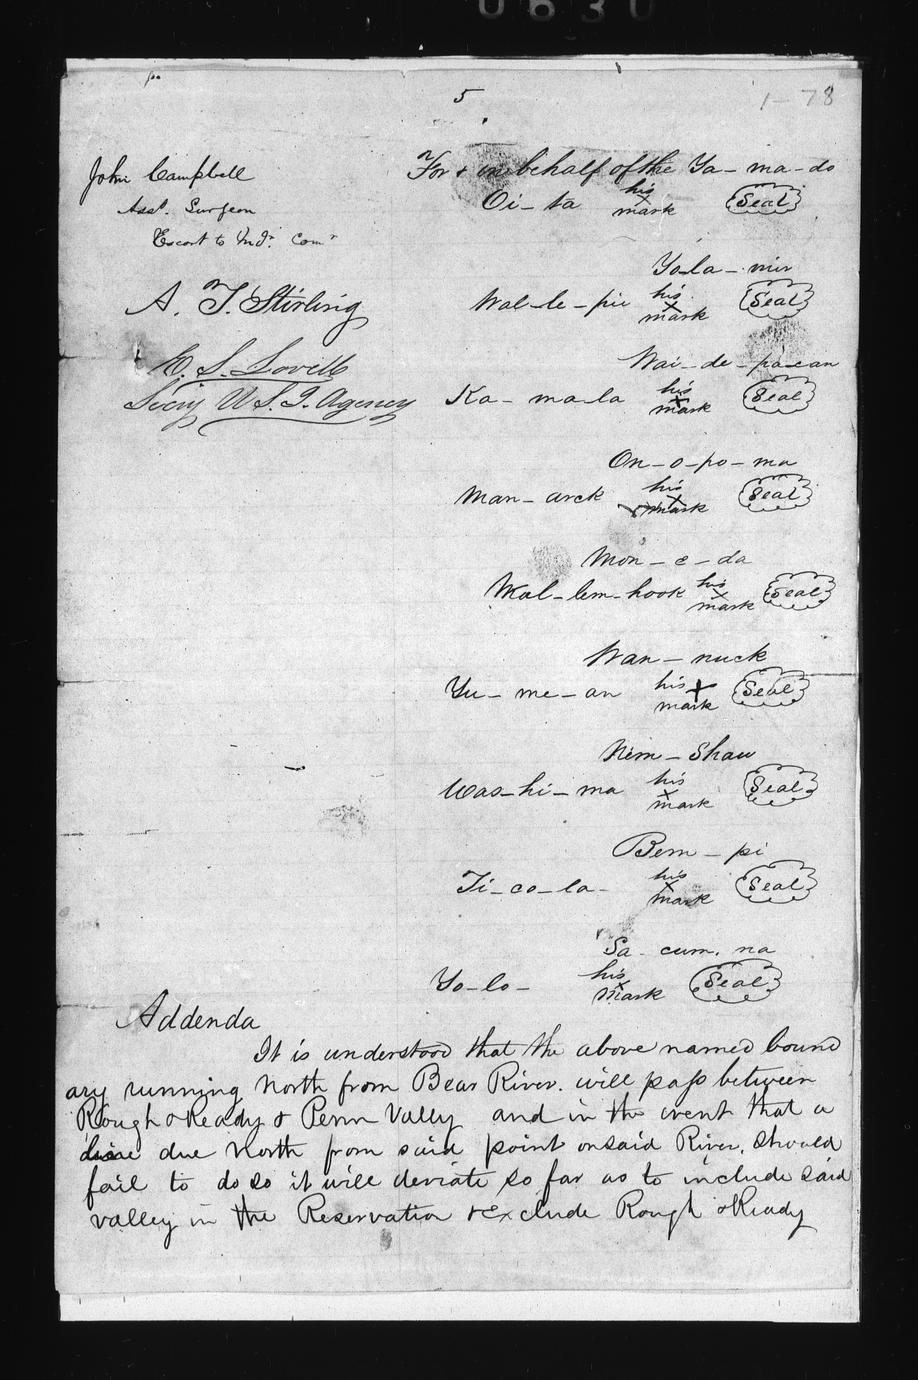 0630
5
1-78
John Campbell
Asst. Surgeon
Escort to Indn. Comr
A. T. Stirling
E. S. Lovill
Secy U S. I. Agency
For & in behalf of the Ya-ma-do
Oi-ta his x mark (Seal)
Yo-la-mir
Wal-le-pie his x mark (Seal)
Wai-de-pa-can
Ka-ma-la his x mark (Seal)
On-o-po-ma
Man-arck his x mark (Seal)
Mon-e-da
Wal-lem-hook his x mark (Seal)
Wan-nuck
Yu-me-an his x mark (Seal)
Nem-Shaw
Was-hi-ma his x mark (Seal)
Bem-pi
Ti-co-la- his x mark (Seal)
Sa-cum.na
Yo-lo- his x mark (Seal)
Addenda
It is understood that the above named bound
ary running North from Bear River. will pass between
Rough & Ready & Penn Valley and in the event that a
line due North from said point on said River, should
fail to do so it will deviate so far as to include said
valley in the Reservation & Exclude Rough & Ready